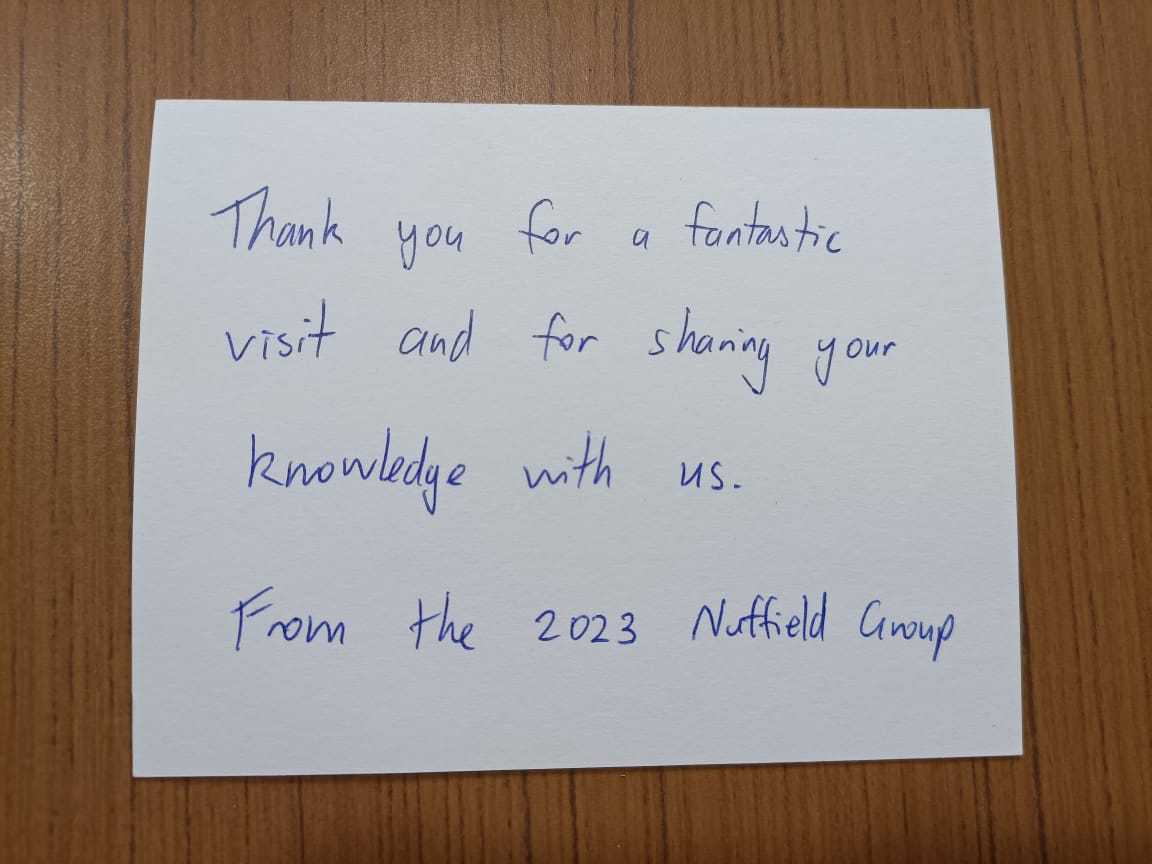 Thank you for a fantastic
visit and for sharing your
knowledge with us.
From the 2023 Nuffield Group